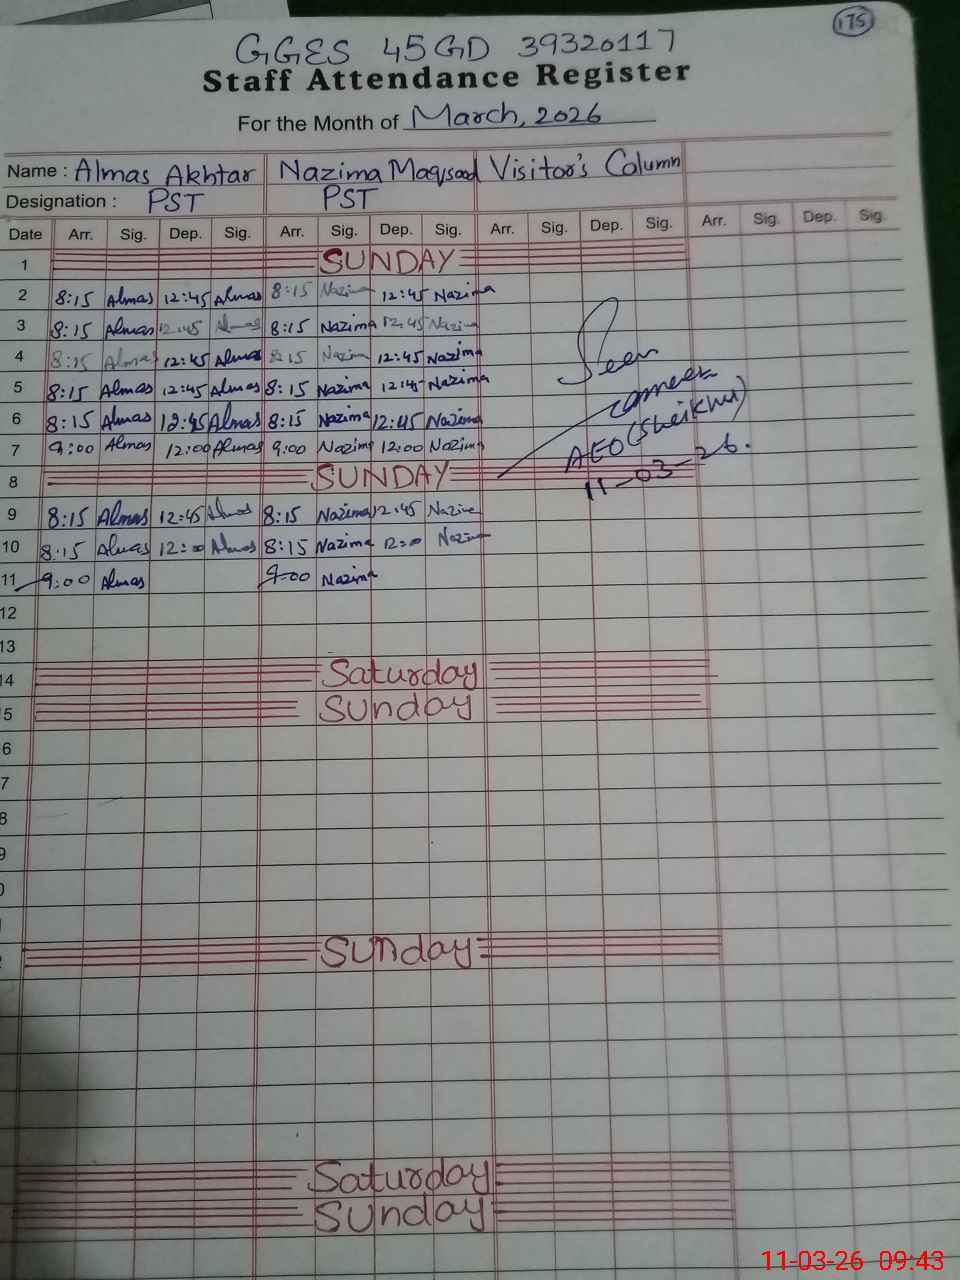 175
GGES 45GD 39320117
Staff Attendance Register
For the Month of March, 2026
Name : Almas Akhtar Nazima Maqsood Visitor's Column
Designation : PST PST
Date Arr. Sig. Dep. Sig. Arr. Sig. Dep. Sig. Arr. Sig. Dep. Sig. Arr. Sig. Dep. Sig.
1 SUNDAY
2 8:15 Almas 12:45 Almas 8:15 Nazima 12:45 Nazima
3 8:15 Almas 12:45 Almas 8:15 Nazima 12:45 Nazima
4 8:15 Almas 12:45 Almas 8:15 Nazima 12:45 Nazima
Seen
5 8:15 Almas 12:45 Almas 8:15 Nazima 12:45 Nazima
6 8:15 Almas 12:45 Almas 8:15 Nazima 12:45 Nazima
AEO (Sheikhu)
7 9:00 Almas 12:00 Almas 9:00 Nazima 12:00 Nazima
11-03-26.
8 SUNDAY
9 8:15 Almas 12:45 Almas 8:15 Nazima 12:45 Nazima
10 8:15 Almas 12:00 Almas 8:15 Nazima 12:00 Nazima
11 9:00 Almas 9:00 Nazima
12
13
14 Saturday
5 Sunday
6
7
8
9
0
Sunday
Saturday
Sunday
11-03-26 09:43